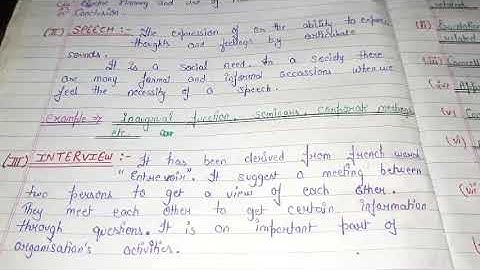 Planning and use of
Conclusion
(II) SPEECH :- The expression of or the ability to express
thoughts and feelings by articulate
sounds.
It is a social need. In a society there
are many formal and informal occassions when we
feel the necessity of a speech.
Example → Inaugural function, seminars, corporate meetings
etc.
(III) INTERVIEW :- It has been derived from french word
"Entrevoir". It suggest a meeting between
two persons to get a view of each other.
They meet each other to get certain information
through questions. It is an important part of
organisation's activities.
(ii)
related
(iii)
(iv)
(v)
(vi)